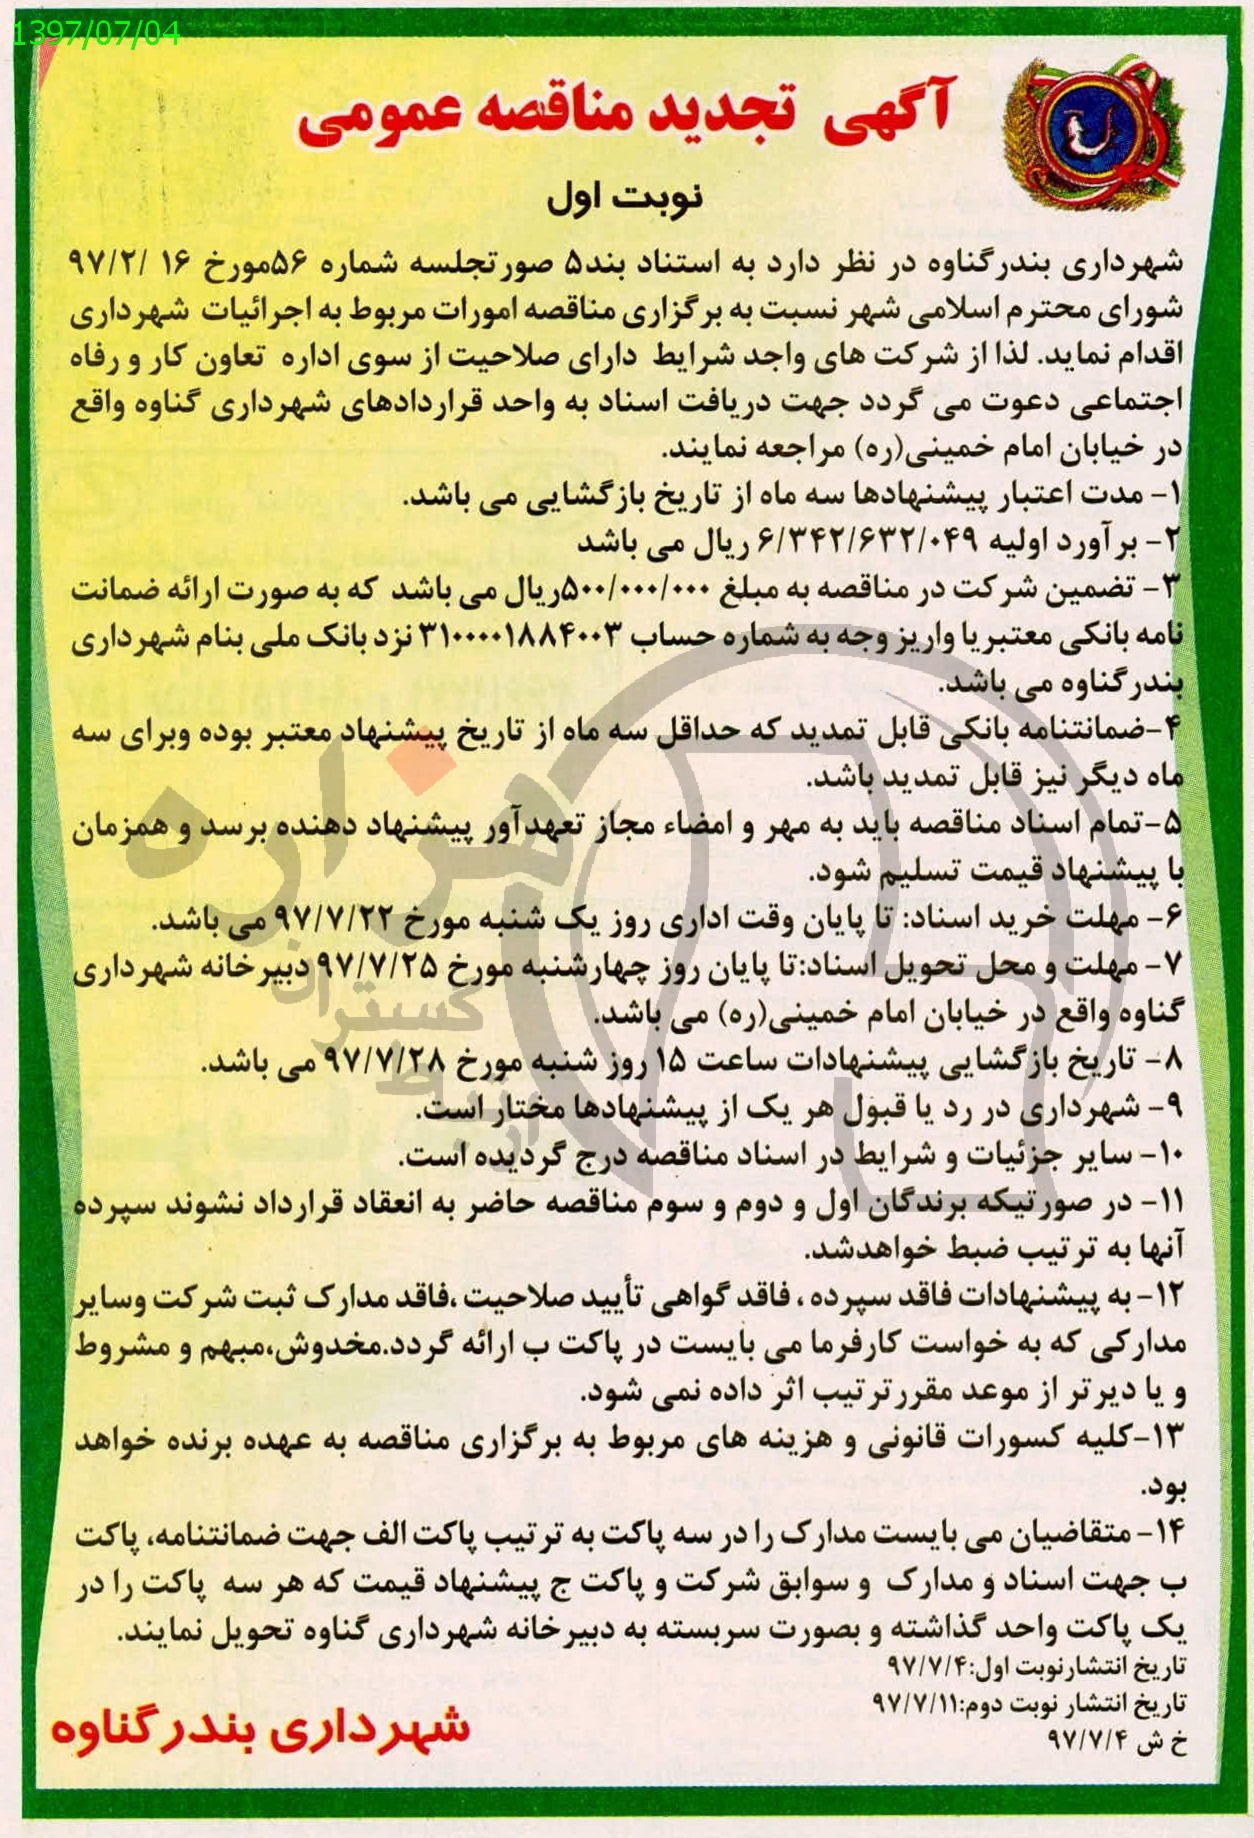 1397/07/04
آگهی تجدید مناقصه عمومی
نوبت اول
شهرداری بندرگناوه در نظر دارد به استناد بند۵ صورتجلسه شماره ۵۶مورخ ۱۶ /۹۷/۲
شورای محترم اسلامی شهر نسبت به برگزاری مناقصه امورات مربوط به اجرائیات شهرداری
اقدام نماید. لذا از شرکت های واجد شرایط دارای صلاحیت از سوی اداره تعاون کار و رفاه
اجتماعی دعوت می گردد جهت دریافت اسناد به واحد قراردادهای شهرداری گناوه واقع
در خیابان امام خمینی(ره) مراجعه نمایند.
۱- مدت اعتبار پیشنهادها سه ماه از تاریخ بازگشایی می باشد.
۲- برآورد اولیه ۶/۳۴۲/۶۳۲/۰۴۹ ریال می باشد
۳- تضمین شرکت در مناقصه به مبلغ ۵۰۰/۰۰۰/۰۰۰ریال می باشد که به صورت ارائه ضمانت
نامه بانکی معتبریا واریز وجه به شماره حساب ۳۱۰۰۰۰۱۸۸۴۰۰۳ نزد بانک ملی بنام شهرداری
بندرگناوه می باشد.
۴-ضمانتنامه بانکی قابل تمدید که حداقل سه ماه از تاریخ پیشنهاد معتبر بوده وبرای سه
ماه دیگر نیز قابل تمدید باشد.
۵-تمام اسناد مناقصه باید به مهر و امضاء مجاز تعهدآور پیشنهاد دهنده برسد و همزمان
با پیشنهاد قیمت تسلیم شود.
۶- مهلت خرید اسناد: تا پایان وقت اداری روز یک شنبه مورخ ۹۷/۷/۲۲ می باشد.
۷- مهلت و محل تحویل اسناد:تا پایان روز چهارشنبه مورخ ۹۷/۷/۲۵ دبیرخانه شهرداری
گناوه واقع در خیابان امام خمینی(ره) می باشد.
۸- تاریخ بازگشایی پیشنهادات ساعت ۱۵ روز شنبه مورخ ۹۷/۷/۲۸ می باشد.
۹- شهرداری در رد یا قبول هر یک از پیشنهادها مختار است.
۱۰- سایر جزئیات و شرایط در اسناد مناقصه درج گردیده است.
۱۱- در صورتیکه برندگان اول و دوم و سوم مناقصه حاضر به انعقاد قرارداد نشوند سپرده
آنها به ترتیب ضبط خواهدشد.
۱۲- به پیشنهادات فاقد سپرده ، فاقد گواهی تأیید صلاحیت ،فاقد مدارک ثبت شرکت وسایر
مدارکی که به خواست کارفرما می بایست در پاکت ب ارائه گردد.مخدوش،مبهم و مشروط
و یا دیرتر از موعد مقررترتیب اثر داده نمی شود.
۱۳-کلیه کسورات قانونی و هزینه های مربوط به برگزاری مناقصه به عهده برنده خواهد
بود.
۱۴- متقاضیان می بایست مدارک را در سه پاکت به ترتیب پاکت الف جهت ضمانتنامه، پاکت
ب جهت اسناد و مدارک و سوابق شرکت و پاکت ج پیشنهاد قیمت که هر سه پاکت را در
یک پاکت واحد گذاشته و بصورت سربسته به دبیرخانه شهرداری گناوه تحویل نمایند.
تاریخ انتشارنوبت اول:۹۷/۷/۴
تاریخ انتشار نوبت دوم:۹۷/۷/۱۱
خ ش ۹۷/۷/۴
شهرداری بندرگناوه
هزاره
گستران